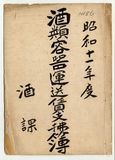 昭和十一年度
酒類容器運送賃支拂簿
酒課